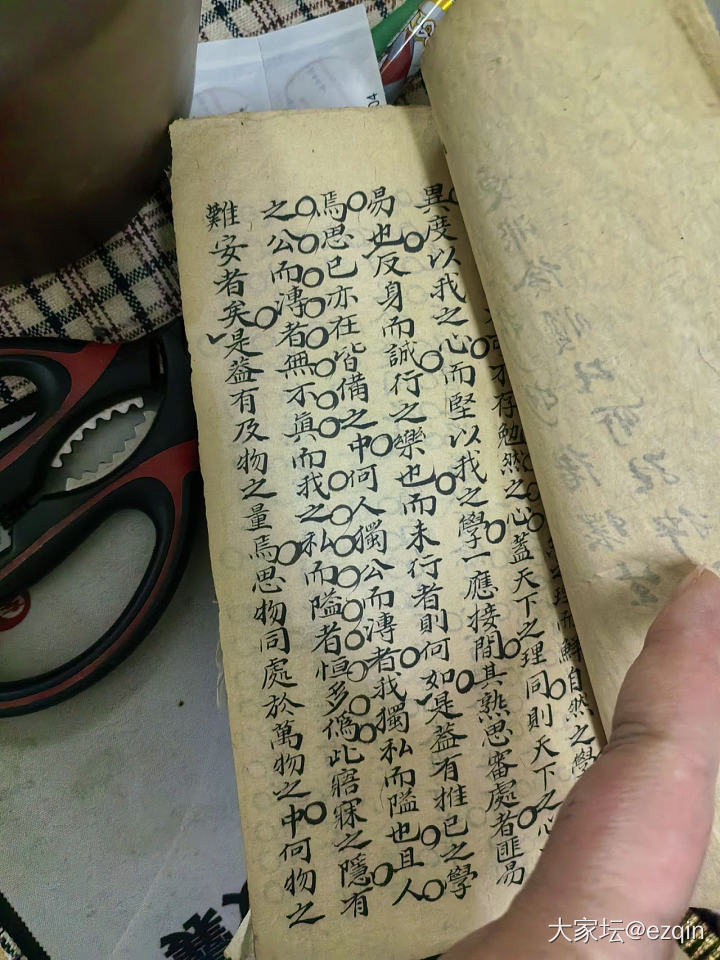 之理而鮮自然之學
不存勉然之心蓋天下之理同則天下之心
異度以我之心而堅以我之學一應接間其熟思審處者匪易
易也反身而誠行之樂也而未行者則何如是益有推已之學
焉思已亦在皆備之中何人獨公而溥者我獨私而隘也且人
之公而溥者無不真而我之私而隘者恒多偽此寤寐之隱有
難安者矣是益有及物之量焉思物同處於萬物之中何物之
04
大家坛@ezqin